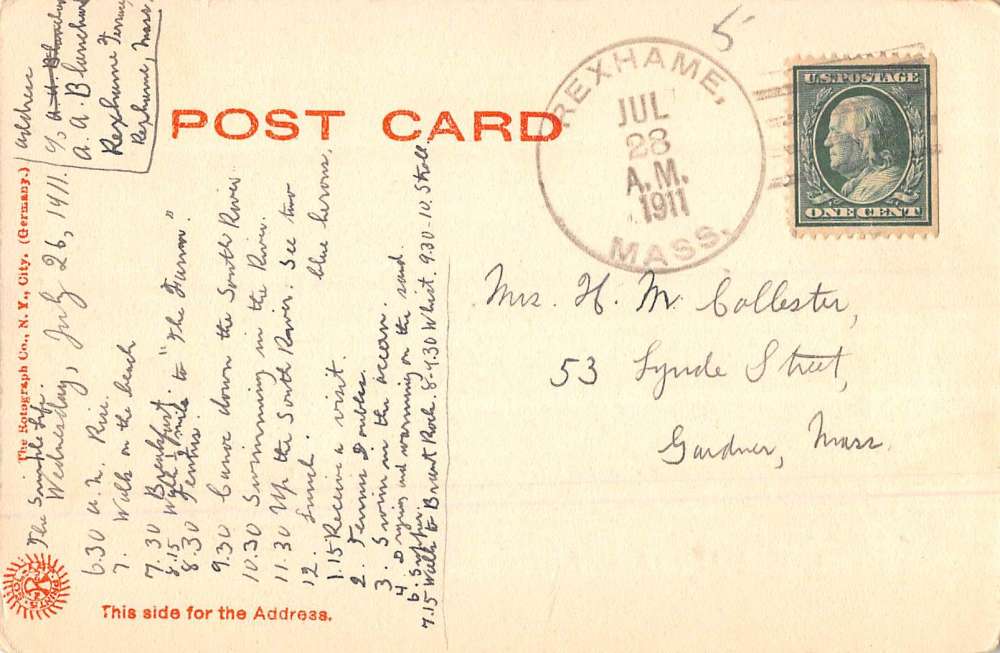 POST CARD
5
REXHAME,
JUL
28
A.M.
1911
MASS.
U.S. POSTAGE
ONE CENT
Mrs. H. M. Collester,
53 Lynde Street,
Gardner, Mass.
The Simple Life.
Wednesday, July 26, 1911.
6.30 a.m. Rise.
7. Walk on the beach
7.30 Breakfast.
8.15 Walk 1/2 mile to "The Farm"
8.30 Tennis.
9.30 Canoe down the South River
10.30 Swimming in the River.
11.30 Up the South River. See two
blue herons,
12. Lunch.
1.15 Receive a visit.
2. Tennis Doubles.
3. Swim in the ocean.
4. Drying and warming on the sand
6. Supper.
7.15 Walk to Brant Rock. 8-9.30 Whist. 9.30-10. Stroll.
Address
c/o A. A. Blanchard
Rexhame Terrace,
Rexhame, Mass.
The Rotograph Co., N. Y., City. (Germany.)
This side for the Address.